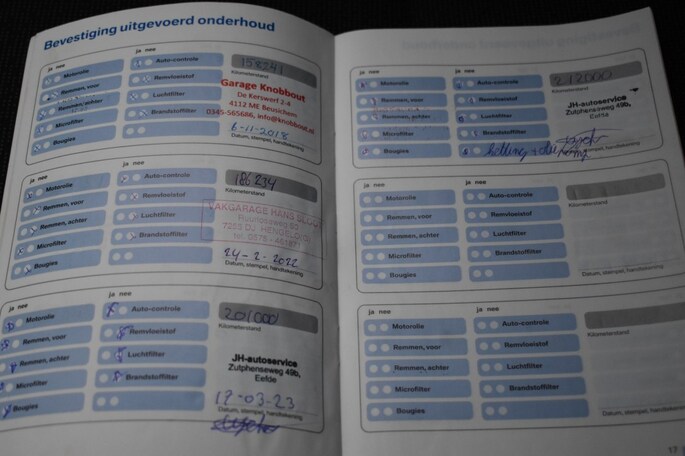 Bevestiging uitgevoerd onderhoud
ja nee ja nee
Motorolie Auto-controle 158241
Kilometerstand
Remmen, voor Remvloeistof Garage Knobbout
De Kerswert 2-4
Remmen, achter Luchtfilter 4112 ME Beusichem
0345-565686, info@knobbout.nl
Microfilter Brandstoffilter 6-11-2018
Bougies Datum, stempel, handtekening
ja nee ja nee
Motorolie Auto-controle 186234
Kilometerstand
Remmen, voor Remvloeistof
Remmen, achter Luchtfilter VAKGARAGE HANS
7255 DJ HENGELO
Microfilter Brandstoffilter 24-2-2022
Bougies Datum, stempel, handtekening
ja nee ja nee
Motorolie Auto-controle 201000
Kilometerstand
Remmen, voor Remvloeistof
Remmen, achter Luchtfilter JH-autoservice
Zutphenseweg 49b,
Eefde
Microfilter Brandstoffilter 17-03-23
Bougies Datum, stempel, handtekening
ja nee ja nee
Motorolie Auto-controle 212000
Kilometerstand
Remmen, voor Remvloeistof JH-autoservice
Zutphenseweg 49b,
Remmen, achter Luchtfilter Eefde
Microfilter Brandstoffilter
Bougies Datum, stempel, handtekening
ja nee ja nee
Motorolie Auto-controle
Kilometerstand
Remmen, voor Remvloeistof
Remmen, achter Luchtfilter
Microfilter Brandstoffilter
Bougies Datum, stempel, handtekening
ja nee ja nee
Motorolie Auto-controle
Kilometerstand
Remmen, voor Remvloeistof
Remmen, achter Luchtfilter
Microfilter Brandstoffilter
Bougies Datum, stempel, handtekening
17